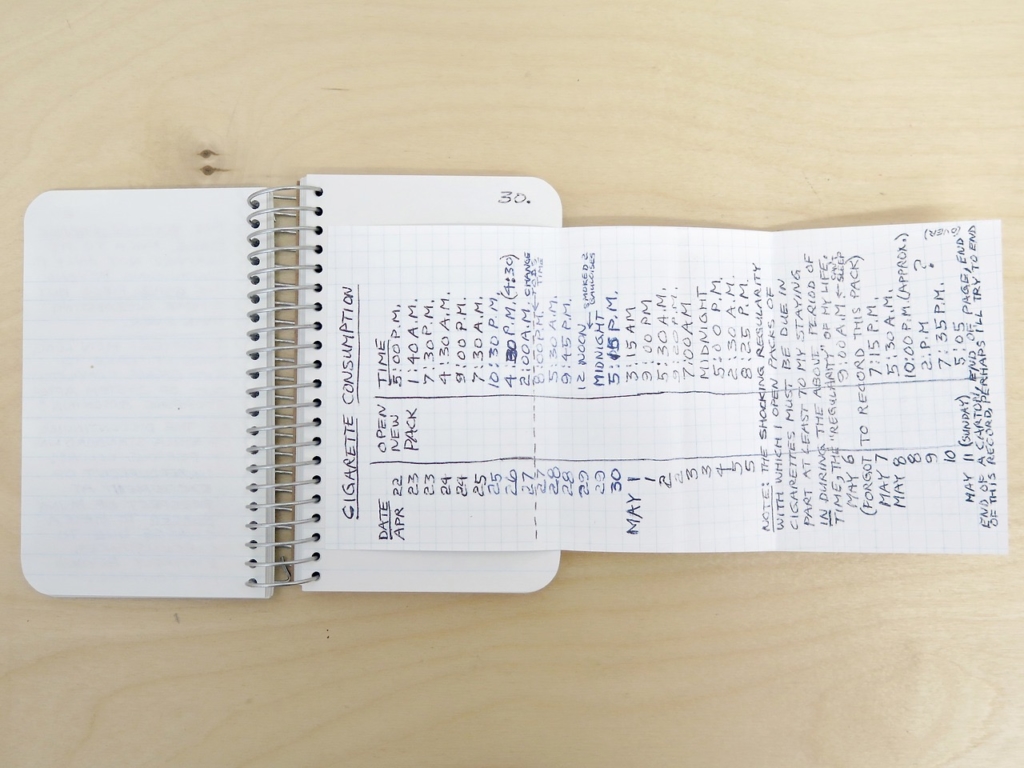 30.
CIGARETTE CONSUMPTION
DATE OPEN NEW PACK TIME
APR 22 5:00 P.M.
23 1:40 A.M.
23 7:30 P.M.
24 4:30 A.M.
24 9:00 P.M.
25 7:30 A.M.
25 10:30 P.M.
26 4:30 P.M. (4:30)
27 2:00 A.M. CHANGE
27 8:00 P.M. TIME
28 5:30 A.M.
28 9:45 P.M.
29 12 NOON ← SMOKED 2
29 MIDNIGHT
30 5:15 P.M.
MAY 1 3:15 AM
1 9:00 PM
2 5:30 A.M.
2 9:00 P.M.
3 7:00 AM
3 MIDNIGHT
4 5:00 P.M.
5 2:30 A.M.
5 8:25 P.M.
NOTE: THE SHOCKING REGULARITY
WITH WHICH I OPEN PACKS OF
CIGARETTES MUST BE DUE IN
PART AT LEAST TO MY STAYING
IN DURING THE ABOVE PERIOD OF
TIME, THE "REGULARITY" OF MY LIFE,
MAY 6 9:00 A.M. ← SLEEP
(FORGOT TO RECORD THIS PACK)
MAY 7 7:15 P.M.
MAY 8 5:30 A.M.
8 10:00 P.M. (APPROX.)
9 2: P.M ?
10 7:35 P.M.
MAY 11 (SUNDAY) 5:05
END OF A CARTON, END OF PAGE, END
OF THIS RECORD, PERHAPS I'LL TRY TO END